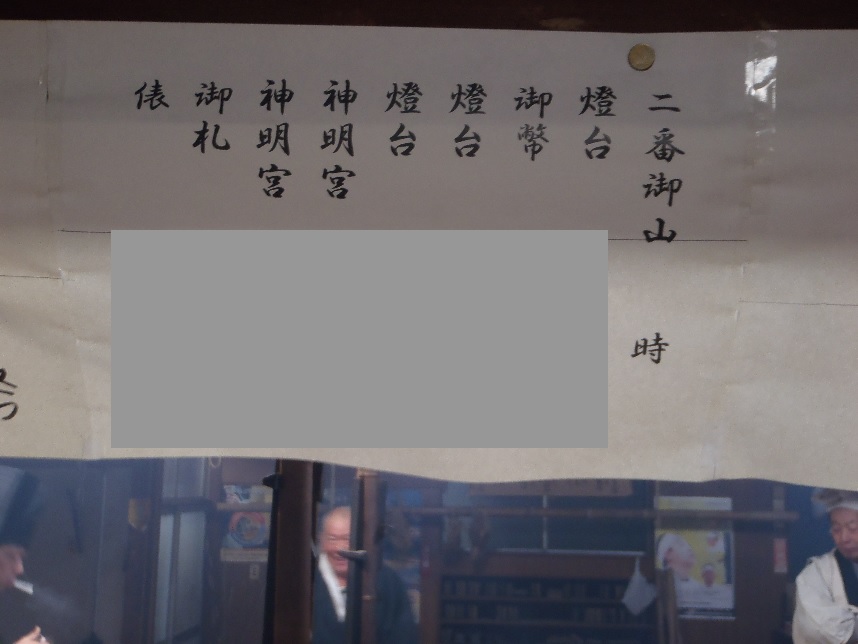 二番御山
時
燈台
御幣
燈台
燈台
神明宮
神明宮
御札
俵